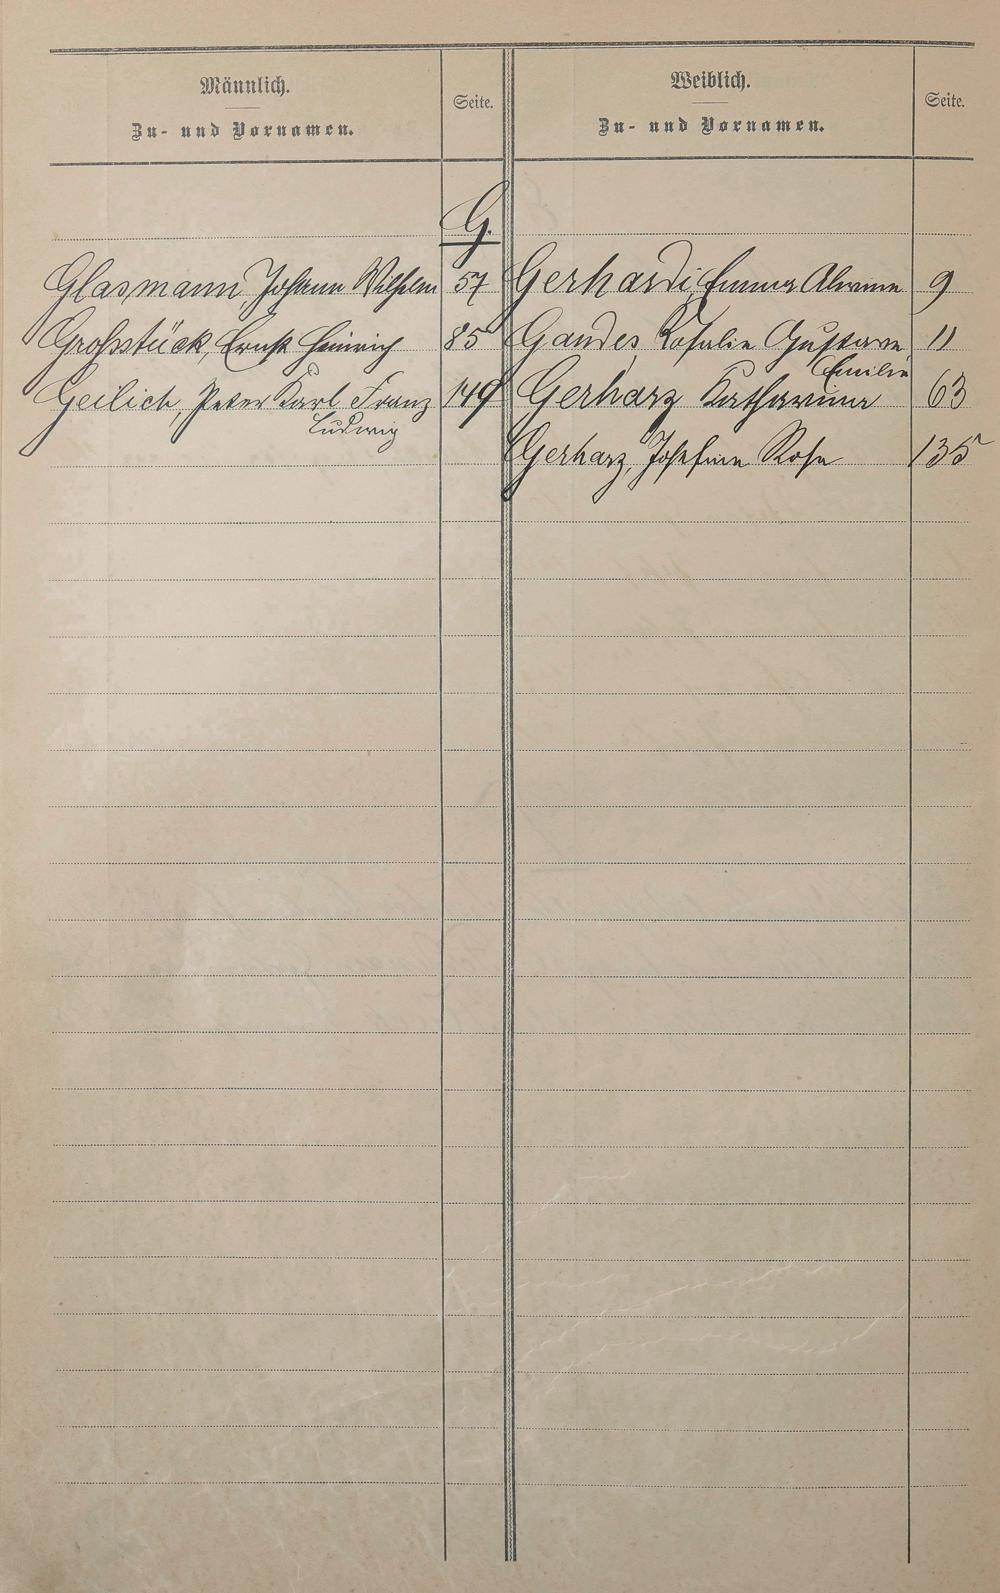 Männlich.
Zu- und Vornamen.
Seite.
Weiblich.
Zu- und Vornamen.
Seite.
G.
Glasmann, Johann Wilhelm 57
Großstück, Ernst Heinrich 85
Geilich, Peter Karl Franz 149
Ludwig
Gerhardi, Emma Alwine 9
Gandes, Rosalie Gustave 11
Emilie
Gerharz Katharina 63
Gerharz, Josefine Rosa 135